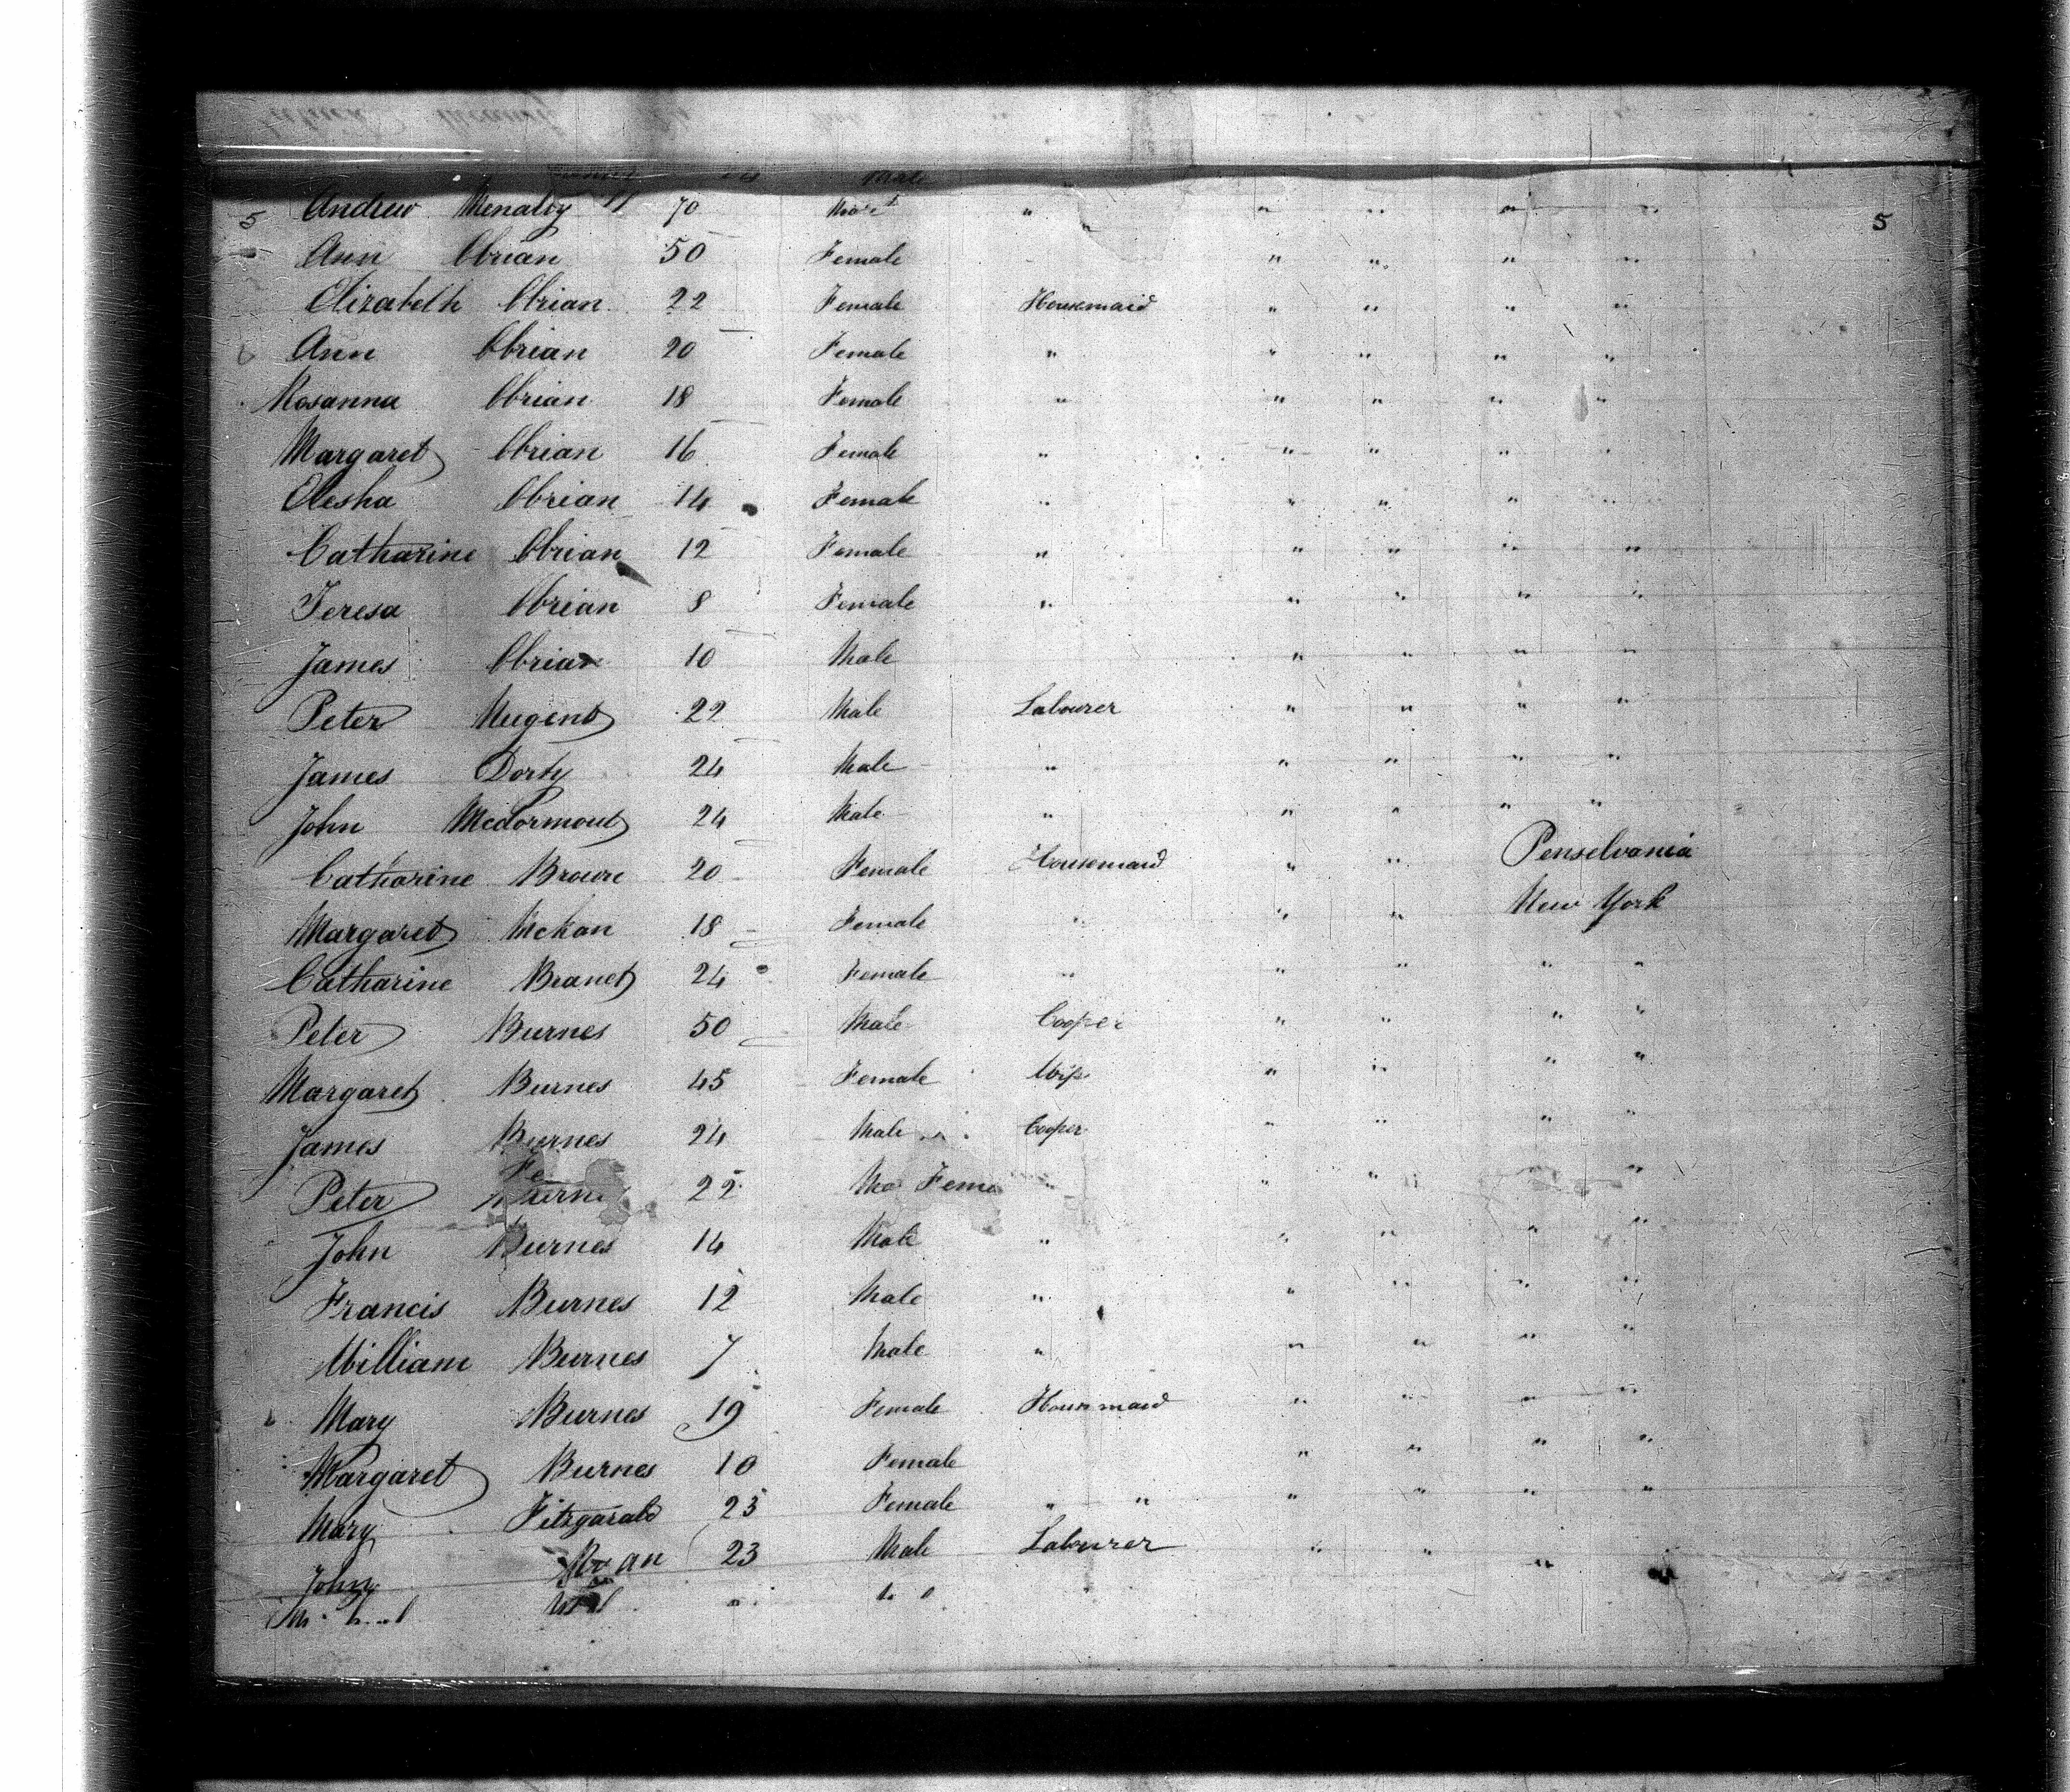 Male
5 Andrew 70 " " " " " 5
Ann Obrian 50 Female " " " "
Elizabeth Obrian 22 Female Housemaid " " " "
Ann Obrian 20 Female " " " " "
Rosanna Obrian 18 Female " " " " "
Margaret Obrian 16 Female " " " " "
Elesha Obrian 14 Female " " " " "
Catharine Obrian 12 Female " " " " "
Teresa Obrian 8 Female " " " " "
James Obrian 10 Male " " " "
Peter Nugent 22 Male Labourer " " " "
James Dorty 24 Male " " " " "
John McDormout 24 Male " " " " "
Catharine Brown 20 Female Housemaid " " Penselvania
Margaret McKan 18 Female " " " New York
Catharine 24 Female " " " " "
Peter Burnes 50 Male Cooper " " " "
Margaret Burnes 45 Female Wife " " " "
James Burnes 24 Male Cooper " " " "
Peter Burne 22 " " " "
John Burnes 14 Male " " " " "
Francis Burnes 12 Male " " " " "
William Burnes 7 Male " " " " "
Mary Burnes 19 Female Housmaid " " " "
Margaret Burnes 10 Female " " " "
Mary Fitzgarald 23 Female " " " " " "
John 23 Male Labourer " " "